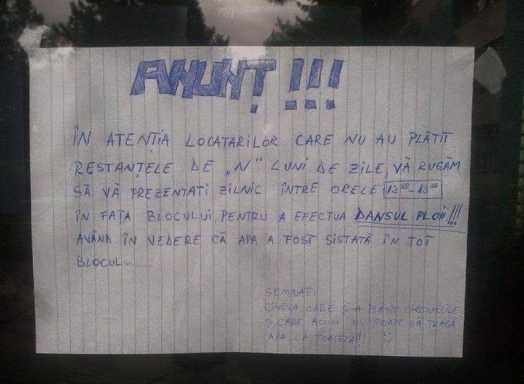 ANUNȚ !!!
ÎN ATENȚIA LOCATARILOR CARE NU AU PLĂTIT
RESTANȚELE DE „N" LUNI DE ZILE, VĂ RUGĂM
SĂ VĂ PREZENTATI ZILNIC ÎNTRE ORELE 12⁰⁰-13⁰⁰
ÎN FAȚA BLOCULUI PENTRU A EFECTUA DANSUL PLOII!!!
AVÂND ÎN VEDERE CĂ APA A FOST SISTATĂ ÎN TOT
BLOCUL.
SEMNAT:
CARE Ș-A PLĂTIT
ȘI CARE ACUM NU POATE SĂ TRAGĂ
APA LA TOALETĂ!!!